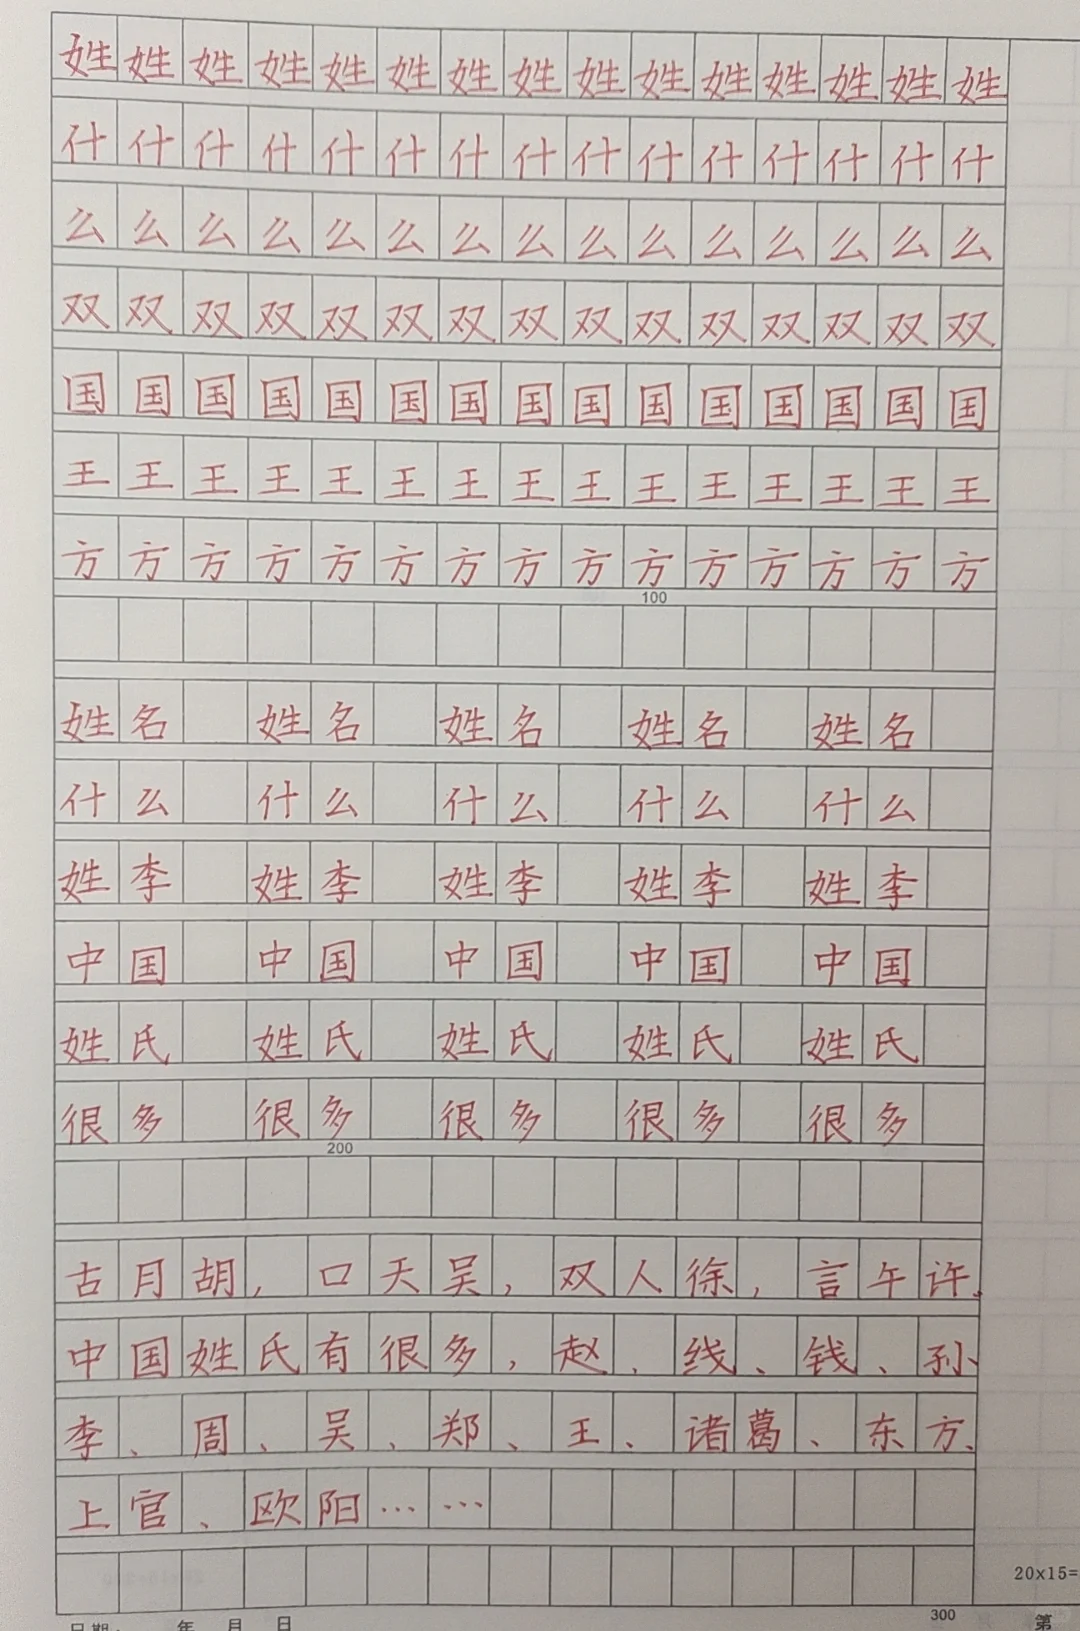 姓姓姓姓姓姓姓姓姓姓姓姓姓姓姓
什什什什什什什什什什什什什什什
么么么么么么么么么么么么么么么
双双双双双双双双双双双双双双双
国国国国国国国国国国国国国国国
王王王王王王王王王王王王王王王
方方方方方方方方方方方方方方方
100
姓名 姓名 姓名 姓名 姓名
什么 什么 什么 什么 什么
姓李 姓李 姓李 姓李 姓李
中国 中国 中国 中国 中国
姓氏 姓氏 姓氏 姓氏 姓氏
很多 很多 很多 很多 很多
200
古月胡，口天吴，双人徐，言午许。
中国姓氏有很多，赵、线、钱、孙、
李、周、吴、郑、王、诸葛、东方、
上官、欧阳……
20×15=
300
日期： 年 月 日 第